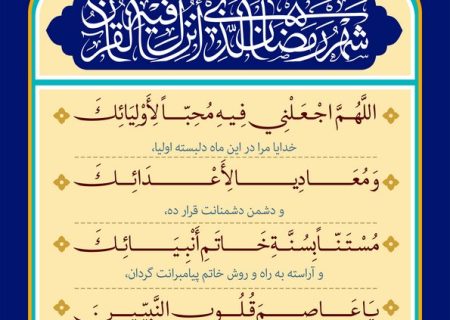 شَهْرُ رَمَضَانَ الَّذِي أُنْزِلَ فِيهِ الْقُرْآنُ
اللَّهُمَّ اجْعَلْنِي فِيهِ مُحِبّاً لِأَوْلِيَائِكَ
خدایا مرا در این ماه دلبسته اولیا،
وَ مُعَادِياً لِأَعْدَائِكَ
و دشمن دشمنانت قرار ده،
مُسْتَنّاً بِسُنَّةِ خَاتَمِ أَنْبِيَائِكَ
و آراسته به راه و روش خاتم پیامبرانت گردان،
يَا عَاصِمَ قُلُوبِ النَّبِيِّينَ